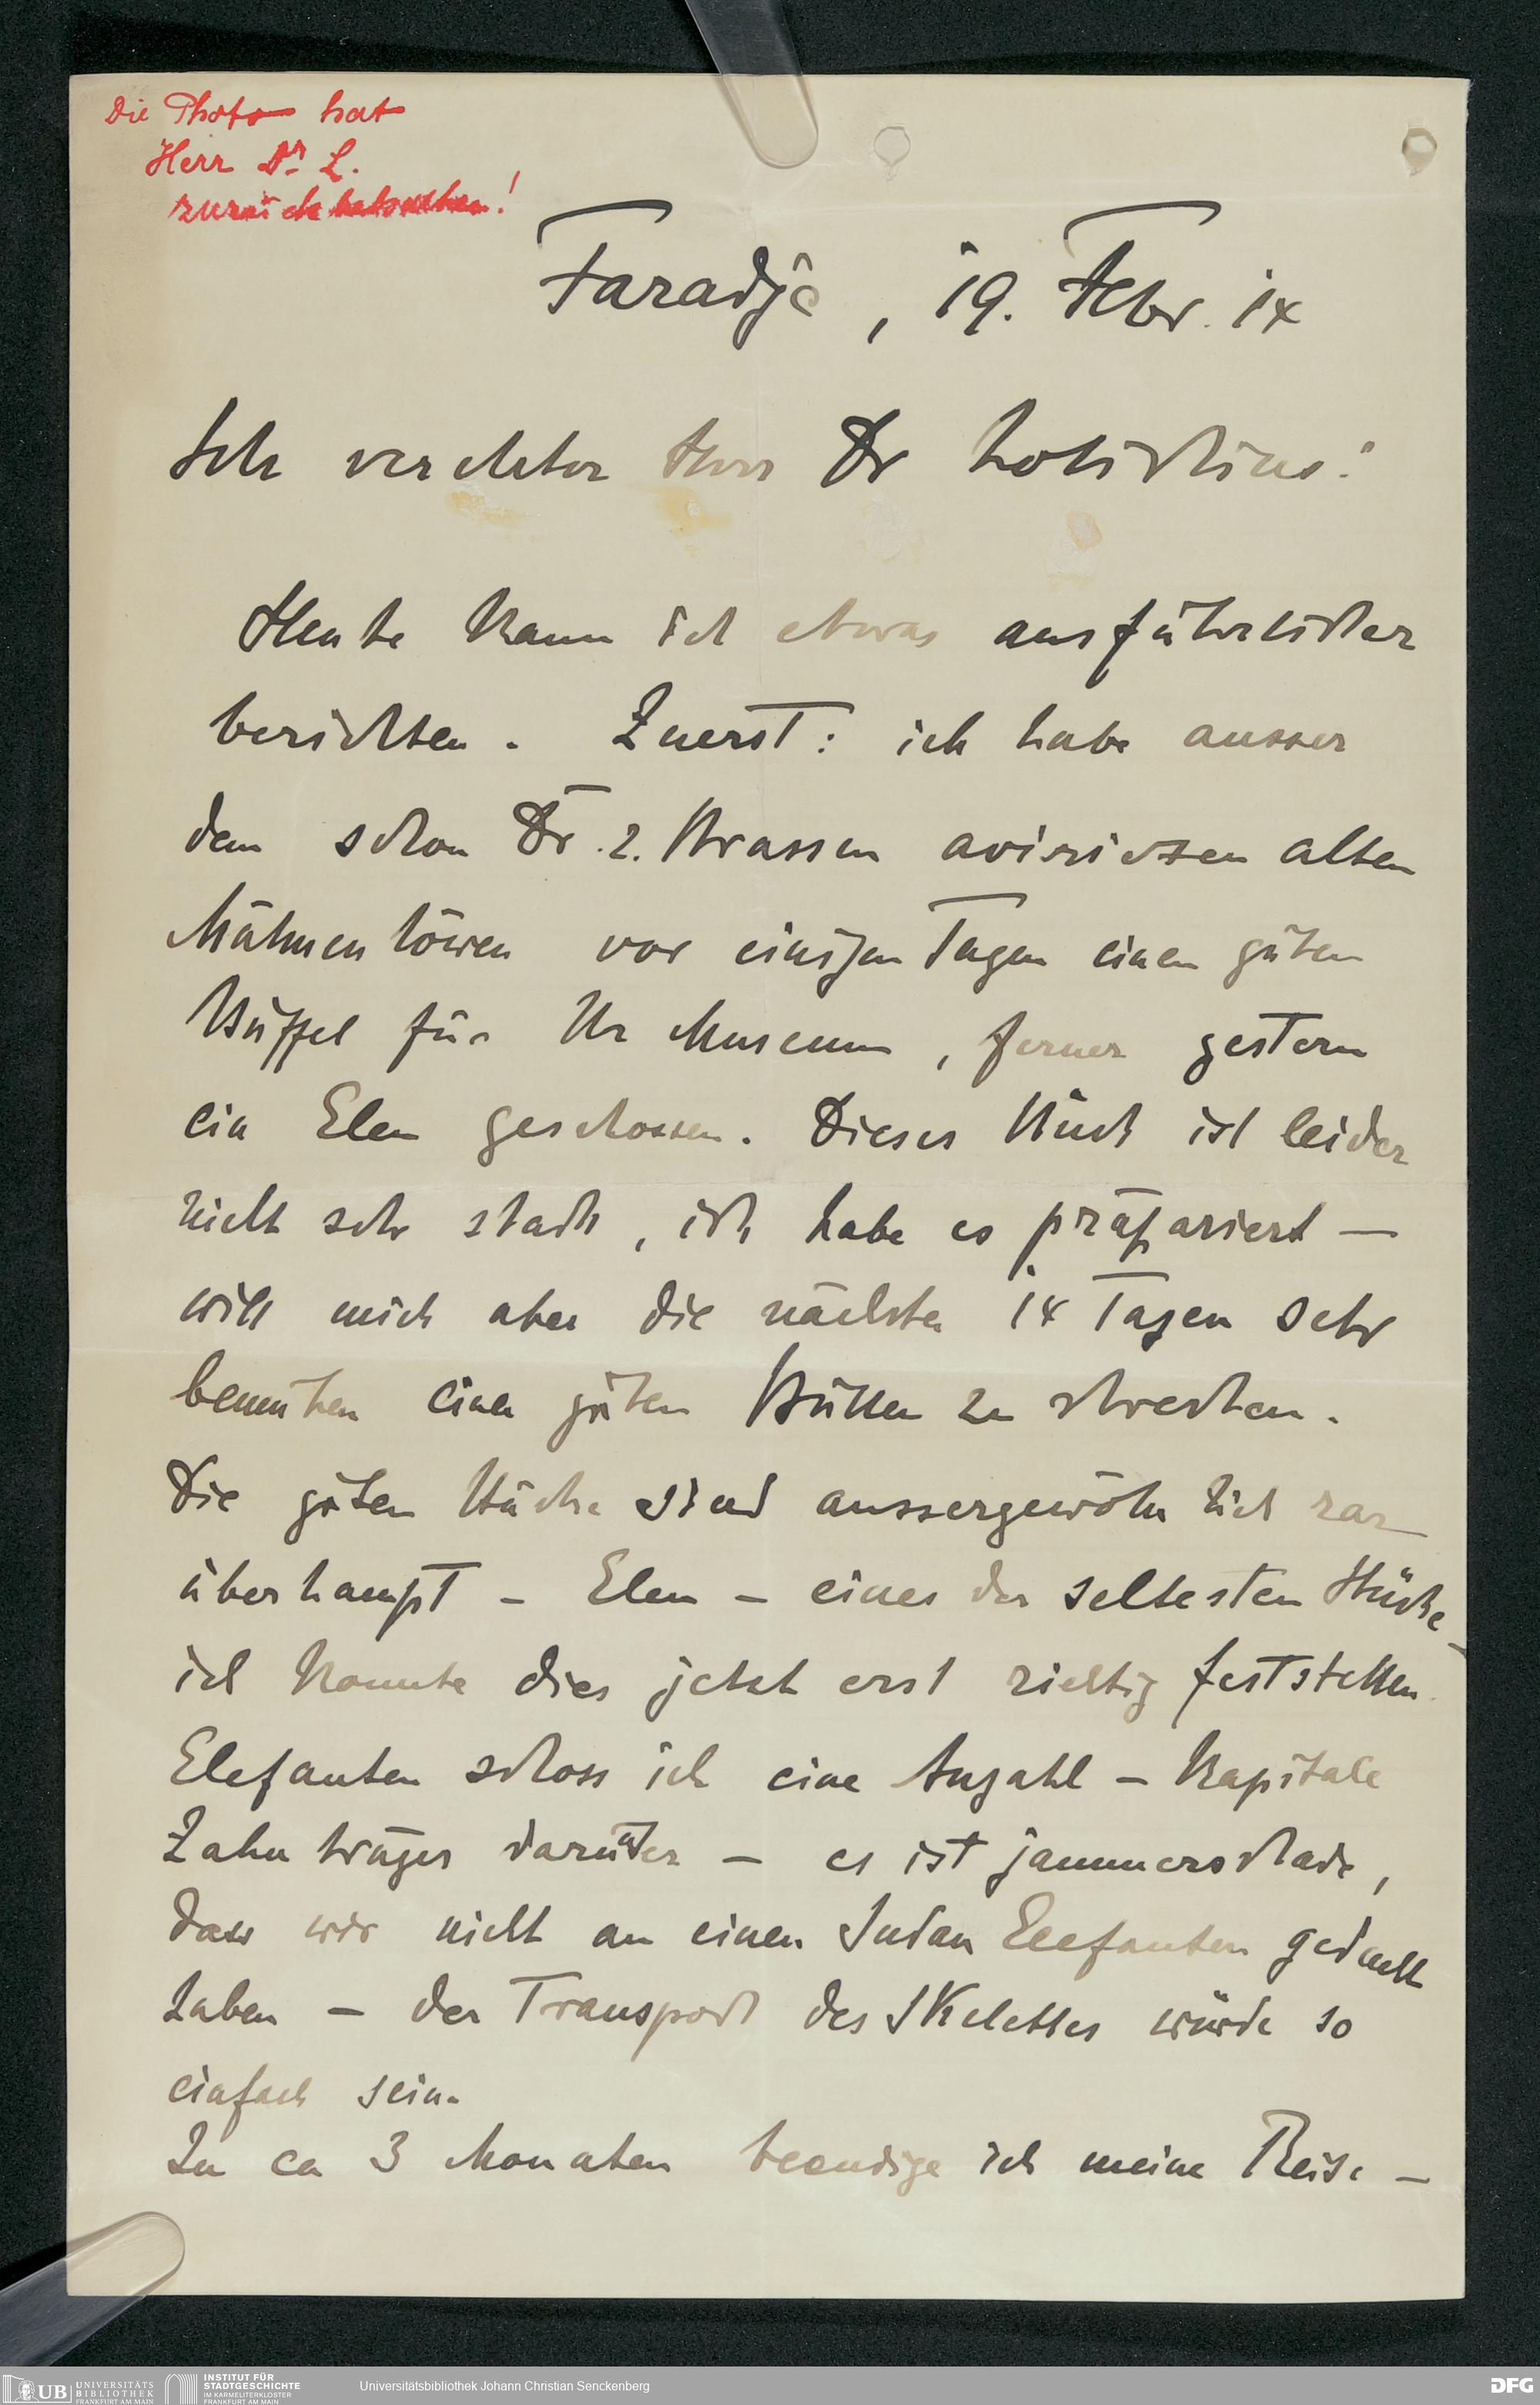 Die Photo hat
Herr Dr. L.
zurück !
Faradje, 19. Febr. 14
Sehr verehrter Herr Dr Lotichius!
Heute kann ich etwas ausführlicher
berichten. Zuerst: ich habe ausser
dem schon Dr. z. Strassen avisierten alten
Mähnenlöwen vor einigen Tagen einen guten
Büffel für Ihr Museum, ferner gestern
ein Elen geschossen. Dieses Stück ist leider
nicht sehr stark, ich habe es präpariert –
will mich aber die nächsten 14 Tagen sehr
bemühen einen guten Bullen zu strecken.
Die guten Stücke sind aussergewöhnlich rar
überhaupt – Elen – eines der seltesten Stücke –
ich konnte dies jetzt erst richtig feststellen.
Elefanten schoss ich eine Anzahl – Kapitale
Zahnträger darunter – es ist jammerschade,
dass wir nicht an einen Sudan Elefanten gedacht
haben – der Transport des Skelettes würde so
einfach sein.
In ca 3 Monaten beendige ich meine Reise –
UB UNIVERSITÄTS
BIBLIOTHEK
FRANKFURT AM MAIN
INSTITUT FÜR
STADTGESCHICHTE
IM KARMELITERKLOSTER
FRANKFURT AM MAIN
Universitätsbibliothek Johann Christian Senckenberg
DFG